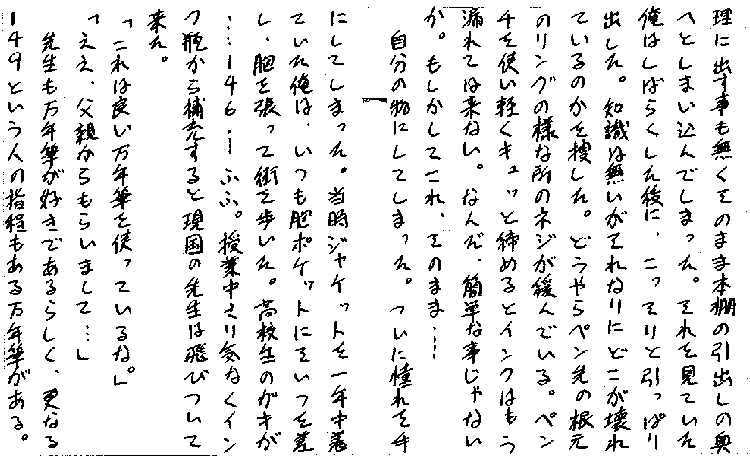 理に出す事も無くそのまま本棚の引出しの奥
へとしまい込んでしまった。それを見ていた
俺はしばらくした後に、こっそりと引っぱり
出した。知識は無いがそれなりにどこが壊れ
ているのかを捜した。どうやらペン先の根元
のリングの様な所のネジが緩んでいる。ペン
チを使い軽くキュッと締めるとインクはもう
漏れては来ない。なんだ、簡単な事じゃない
か。もしかしてこれ、そのまま…
自分の物にしてしまった。ついに憧れを手
にしてしまった。当時ジャケットを一年中着
ていた俺は、いつも胸ポケットにそいつを差
し、胸を張って街を歩いた。高校生のガキが
…146…！ふふ。授業中さり気なくイン
ク瓶から補充すると現国の先生は飛びついて
来た。
「これは良い万年筆を使っているな。」
「ええ、父親からもらいまして…」
先生も万年筆が好きであるらしく、更なる
149という人の指程もある万年筆がある。